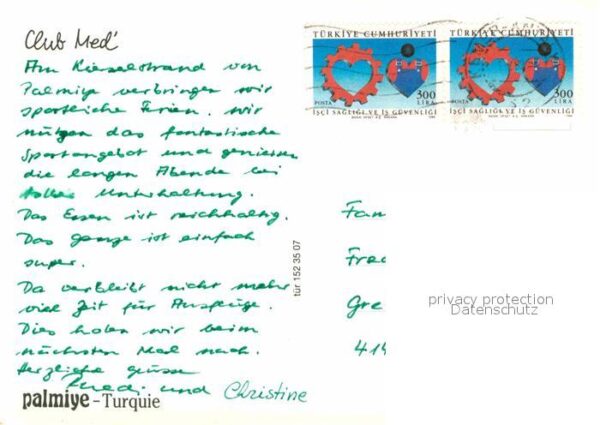 Club Med'
Am Kieselstrand von
Palmiye verbringen wir
sportliche Ferien. Wir
nützen das fantastische
Sportangebot und geniessen
die langen Abende bei
toller Unterhaltung.
Das Essen ist reichhaltig.
Das ganze ist einfach
super.
Da verbleibt nicht mehr
viel Zeit für Ausflüge.
Dies holen wir beim
nächsten Mal nach.
Herzliche Grüsse
und Christine
palmiye - Turquie
tür 152 35 07
TÜRKİYE CUMHURİYETİ
300
POSTA LİRA
İŞÇİ SAĞLIĞI VE İŞ GÜVENLİĞİ
TÜRKİYE CUMHURİYETİ
300
POSTA LİRA
İŞÇİ SAĞLIĞI VE İŞ GÜVENLİĞİ
Fam
Fred
Gre
414
privacy protection
Datenschutz